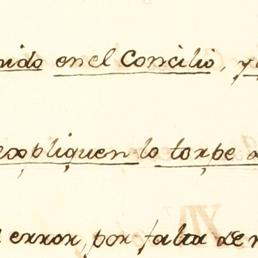 nido en el Concilio, y
expliquen lo torpe
error, por falta de